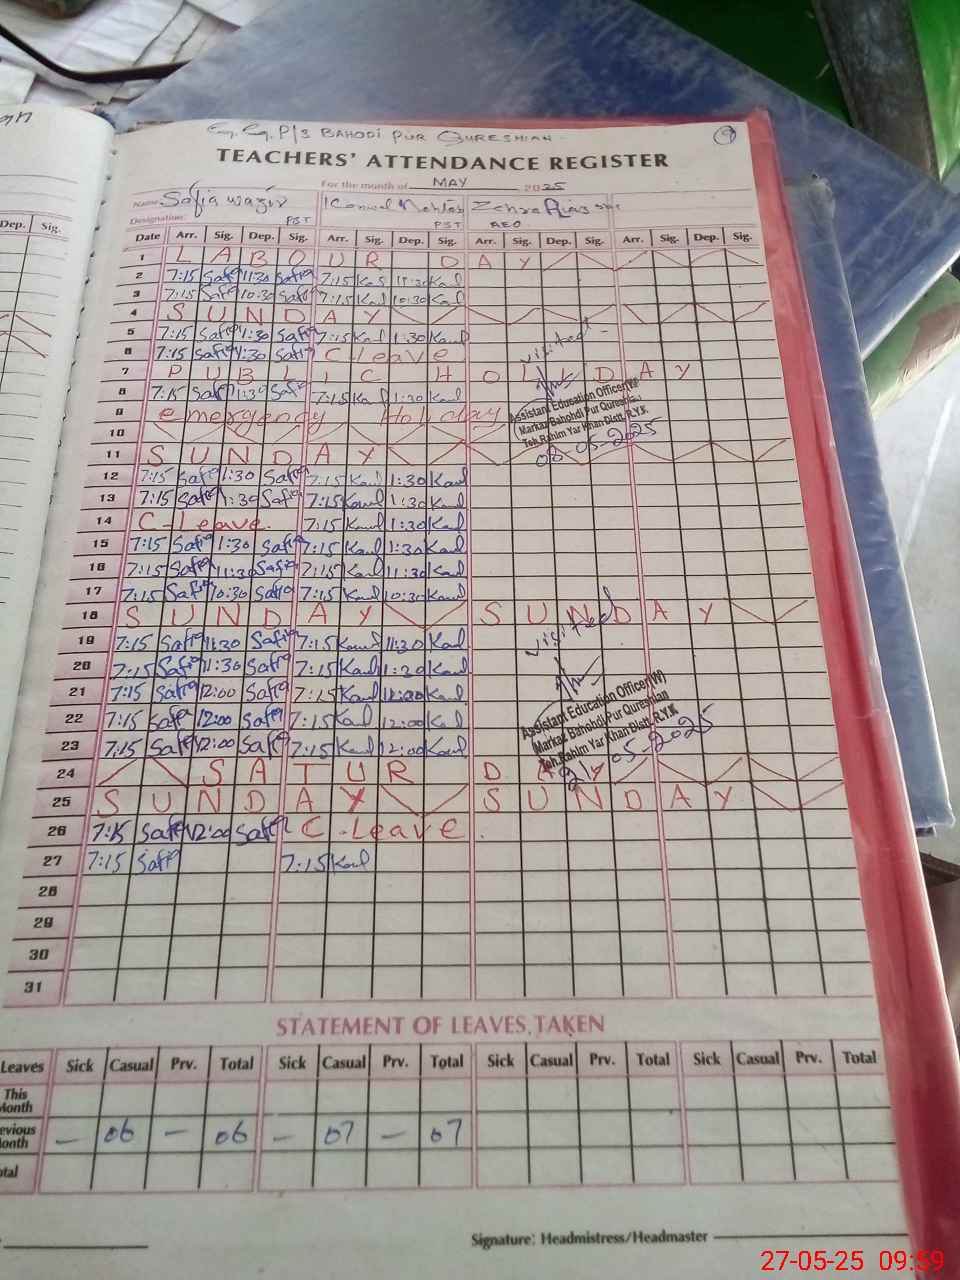 G. G. P/S BAHODI PUR QURESHIAN
9
TEACHERS' ATTENDANCE REGISTER
For the month of MAY 2025
Name: Safia wazir Kanwal Zehra Riaz
Designation: PST PST AEO
Date Arr. Sig. Dep. Sig. Arr. Sig. Dep. Sig. Arr. Sig. Dep. Sig. Arr. Sig. Dep. Sig.
Dep. Sig.
1 LABOUR DAY
2 7:15 Safia 11:30 Safia 7:15 11:30
3 7:15 Safia 10:30 Safia 7:15 10:30
4 SUNDAY
5 7:15 Safia 1:30 Safia 7:15 1:30
visited
6 7:15 Safia 1:30 Safia C Leave
7 PUBLIC HOLIDAY
8 7:15 Safia 1:30 Safia 7:15 1:30
Assistant Education Officer(W)
Markaz Bahohdi Pur Qureshian
Teh. Rahim Yar Khan Distt. R.Y.K.
08-05-2025
9 emergency Holiday
10
11 SUNDAY
12 7:15 Safia 1:30 Safia 7:15 1:30
13 7:15 Safia 1:30 Safia 7:15 1:30
14 C-Leave. 7:15 1:30
15 7:15 Safia 1:30 Safia 7:15 1:30
16 7:15 Safia 11:30 Safia 7:15 11:30
17 7:15 Safia 10:30 Safia 7:15 10:30
18 SUNDAY SUNDAY
visited
19 7:15 Safia 11:30 Safia 7:15 11:30
20 7:15 Safia 11:30 Safia 7:15 11:30
21 7:15 Safia 12:00 Safia 7:15 12:00
22 7:15 Safia 12:00 Safia 7:15 12:00
23 7:15 Safia 12:00 Safia 7:15 12:00
Assistant Education Officer(W)
Markaz Bahohdi Pur Qureshian
Teh. Rahim Yar Khan Distt. R.Y.K.
05-2025
24 SATURDAY
25 SUNDAY SUNDAY
26 7:15 Safia 12:00 Safia C-Leave.
27 7:15 Safia 7:15
28
29
30
31
STATEMENT OF LEAVES TAKEN
Leaves Sick Casual Prv. Total Sick Casual Prv. Total Sick Casual Prv. Total Sick Casual Prv. Total
This Month
evious onth — 06 — 06 — 07 — 07
otal
Signature: Headmistress/Headmaster
27-05-25 09:59